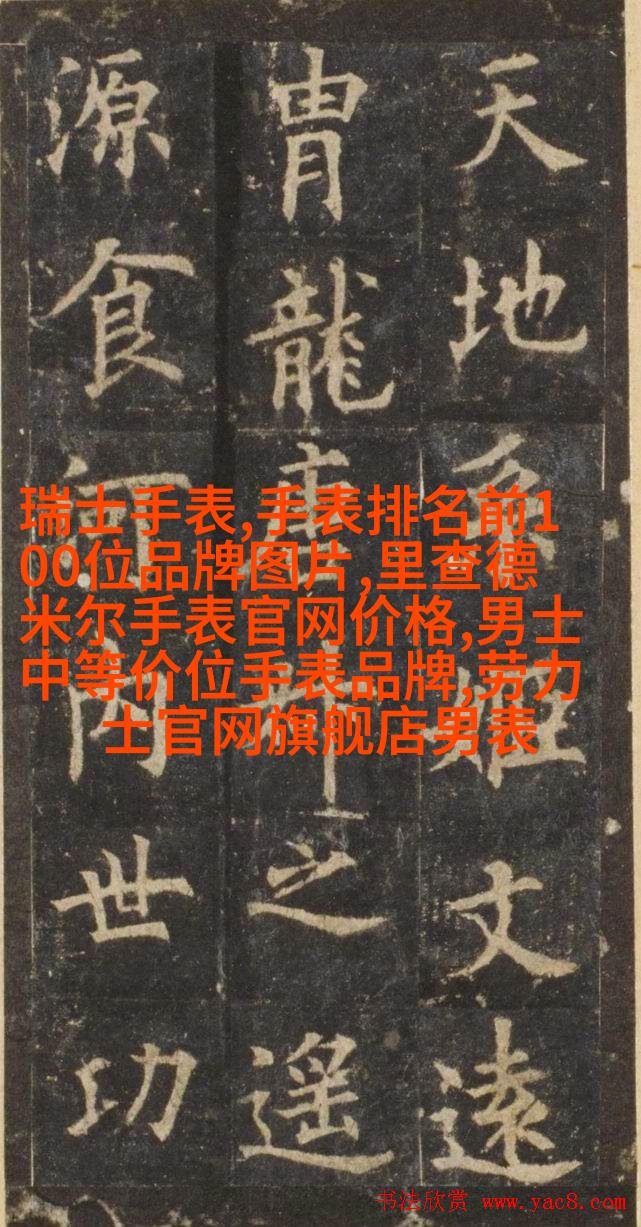 天地系姬文遠
胄龍唐之遥
源食河内世功
瑞士手表,手表排名前1
00位品牌图片,里查德
米尔手表官网价格,男士
中等价位手表品牌,劳力
士官网旗舰店男表
书法欣赏 www.yac8.com